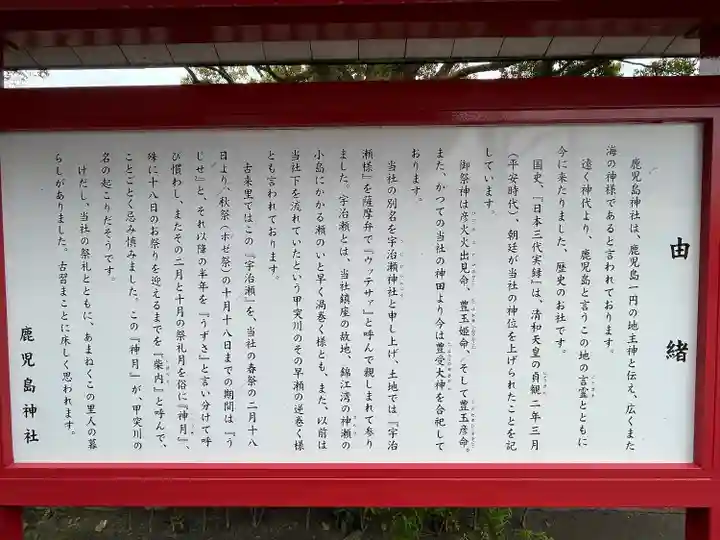 由緒
鹿児島神社は、鹿児島一円の地主神と伝え、広くまた
海の神様であると言われております。
遠く神代より、鹿児島と言うこの地の言霊とともに
今に来たりました、歴史のお社です。
国史、『日本三代実録』は、清和天皇の貞観二年三月
(平安時代)、朝廷が当社の神位を上げられたことを記
しています。
御祭神は彦火火出見命、豊玉姫命、そして豊玉彦命。
また、かつての当社の神田より今は豊受大神を合祀して
おります。
当社の別名を宇治瀬神社と申し上げ、土地では『宇治
瀬様』を薩摩弁で『ウッテサァ』と呼んで親しまれて参り
ました。宇治瀬とは、当社鎮座の故地、錦江湾の神瀬の
小島にかかる瀬のいと早く渦巻く様とも、また、以前は
当社下を流れていたという甲突川のその早瀬の逆巻く様
とも言われております。
古来里ではこの『宇治瀬』を、当社の春祭の二月十八
日より、秋祭(ホゼ祭)の十月十八日までの期間は『う
じせ』と、それ以降の半年を『うずさ』と言い分けて呼
び慣わし、またその二月と十月の祭礼月を俗に『神月』、
殊に十八日のお祭りを迎えるまでを『柴内』と呼んで、
ことごとく忌み慎みました。この『神月』が、甲突川の
名の起こりだそうです。
けだし、当社の祭礼とともに、あまねくこの里人の暮
らしがありました。古習まことに床しく思われます。
鹿児島神社